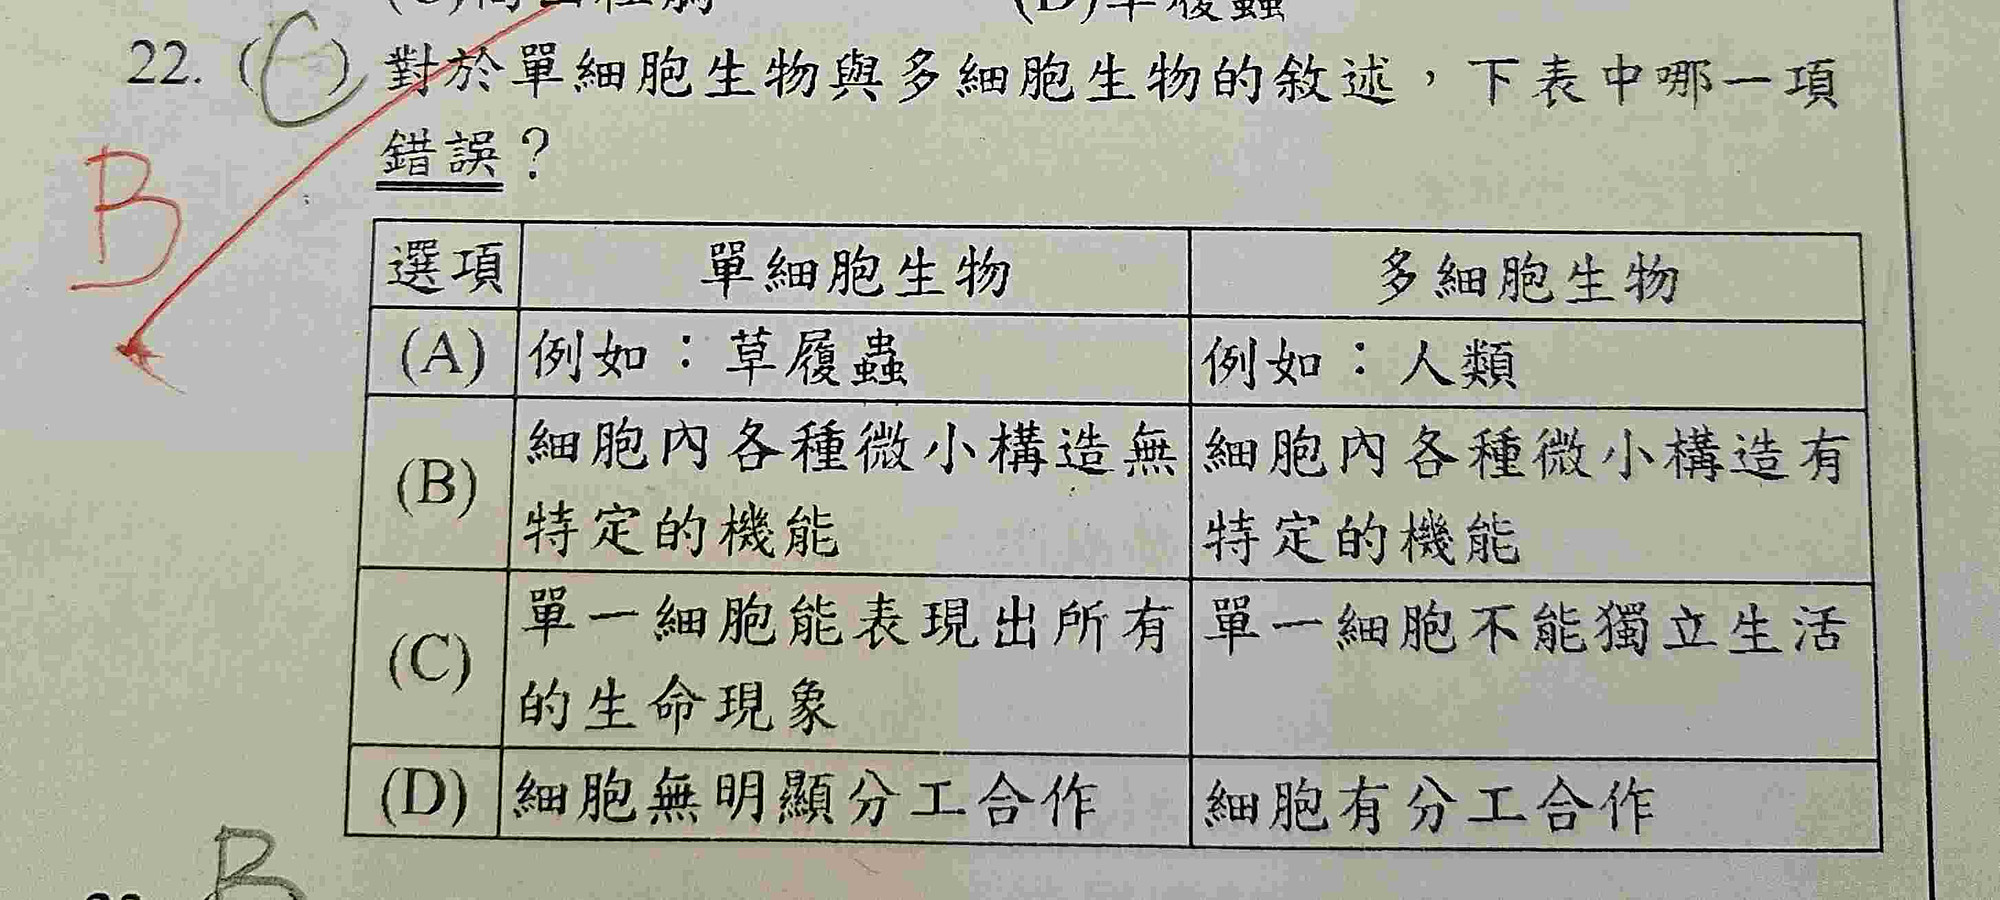 (D)草履蟲
22. (C) 對於單細胞生物與多細胞生物的敘述，下表中哪一項
錯誤？
B
選項 單細胞生物 多細胞生物
(A) 例如：草履蟲 例如：人類
(B) 細胞內各種微小構造無 細胞內各種微小構造有
特定的機能 特定的機能
(C) 單一細胞能表現出所有 單一細胞不能獨立生活
的生命現象
(D) 細胞無明顯分工合作 細胞有分工合作
B